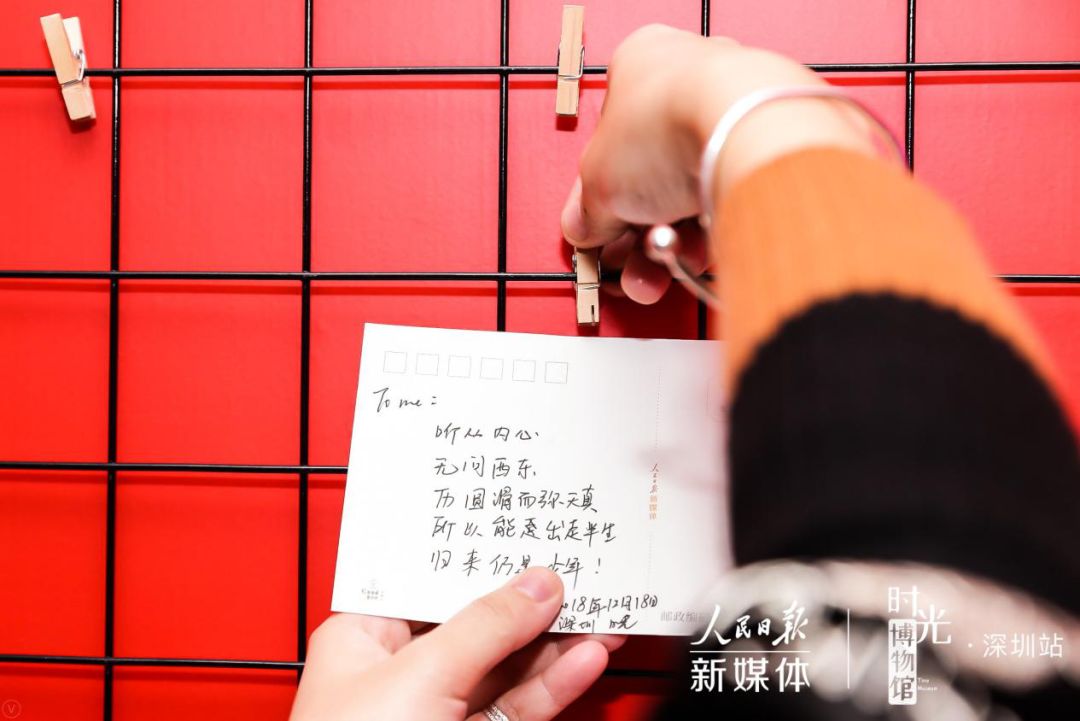 To me:
听从内心
无问西东
历圆滑而弥天真
所以能愿出走半生
归来仍是少年!
2018年12月18日
深圳
人民日报新媒体
邮政编
人民日报
新媒体
时光
博物馆
Time Museum
·深圳站